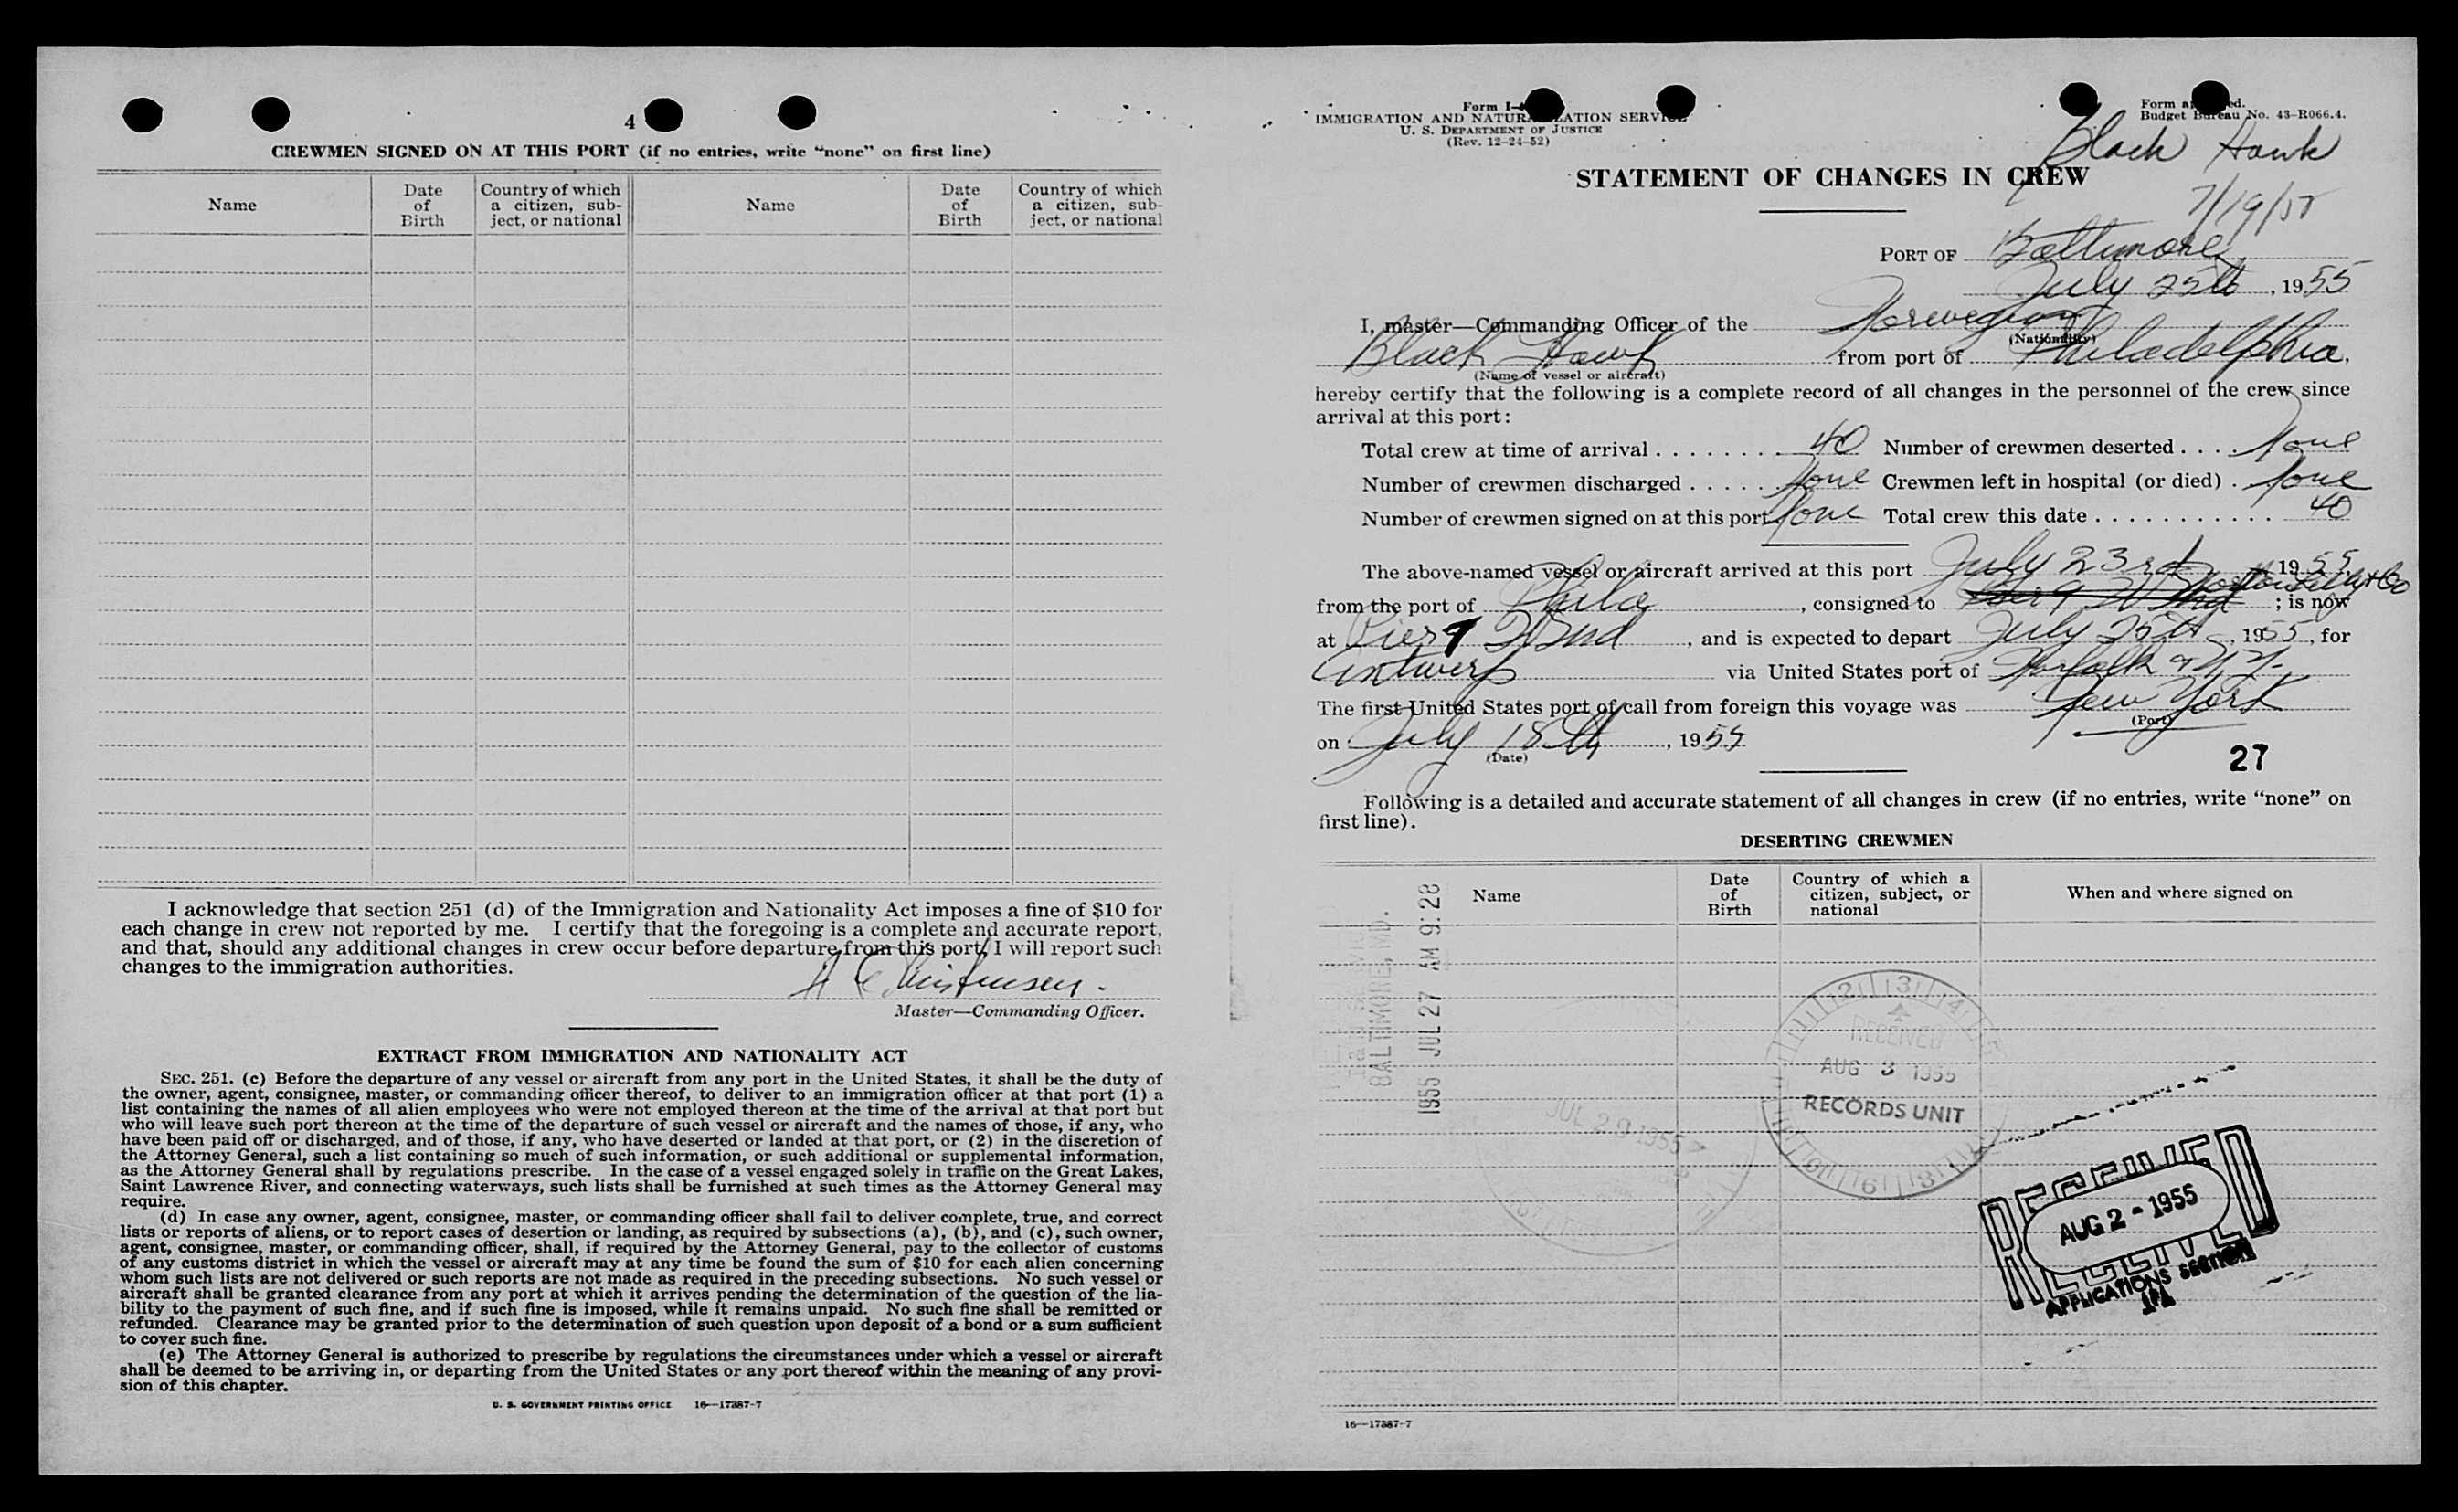 4
CREWMEN SIGNED ON AT THIS PORT (if no entries, write “none” on first line)
Name
Date of Birth
Country of which a citizen, subject, or national
Name
Date of Birth
Country of which a citizen, subject, or national
I acknowledge that section 251 (d) of the Immigration and Nationality Act imposes a fine of $10 for
each change in crew not reported by me. I certify that the foregoing is a complete and accurate report,
and that, should any additional changes in crew occur before departure from this port, I will report such
changes to the immigration authorities.
Master—Commanding Officer.
EXTRACT FROM IMMIGRATION AND NATIONALITY ACT
SEC. 251. (c) Before the departure of any vessel or aircraft from any port in the United States, it shall be the duty of
the owner, agent, consignee, master, or commanding officer thereof, to deliver to an immigration officer at that port (1) a
list containing the names of all alien employees who were not employed thereon at the time of the arrival at that port but
who will leave such port thereon at the time of the departure of such vessel or aircraft and the names of those, if any, who
have been paid off or discharged, and of those, if any, who have deserted or landed at that port, or (2) in the discretion of
the Attorney General, such a list containing so much of such information, or such additional or supplemental information,
as the Attorney General shall by regulations prescribe. In the case of a vessel engaged solely in traffic on the Great Lakes,
Saint Lawrence River, and connecting waterways, such lists shall be furnished at such times as the Attorney General may
require.
(d) In case any owner, agent, consignee, master, or commanding officer shall fail to deliver complete, true, and correct
lists or reports of aliens, or to report cases of desertion or landing, as required by subsections (a), (b), and (c), such owner,
agent, consignee, master, or commanding officer, shall, if required by the Attorney General, pay to the collector of customs
of any customs district in which the vessel or aircraft may at any time be found the sum of $10 for each alien concerning
whom such lists are not delivered or such reports are not made as required in the preceding subsections. No such vessel or
aircraft shall be granted clearance from any port at which it arrives pending the determination of the question of the lia-
bility to the payment of such fine, and if such fine is imposed, while it remains unpaid. No such fine shall be remitted or
refunded. Clearance may be granted prior to the determination of such question upon deposit of a bond or a sum sufficient
to cover such fine.
(e) The Attorney General is authorized to prescribe by regulations the circumstances under which a vessel or aircraft
shall be deemed to be arriving in, or departing from the United States or any port thereof within the meaning of any provi-
sion of this chapter.
U. S. GOVERNMENT PRINTING OFFICE 16—17387-7
Form I-
IMMIGRATION AND NATURALIZATION SERVICE
U. S. DEPARTMENT OF JUSTICE
(Rev. 12-24-52)
Form
Budget Bureau No. 43-R066.4.
Black Hawk
STATEMENT OF CHANGES IN CREW
7/19/55
PORT OF Baltimore
July 25th, 1955
I, master—Commanding Officer of the Norwegian
(Nationality)
Black Hawk from port of Philadelphia.
(Name of vessel or aircraft)
hereby certify that the following is a complete record of all changes in the personnel of the crew since
arrival at this port:
Total crew at time of arrival . . . . . . . . 40 Number of crewmen deserted . . . . None
Number of crewmen discharged . . . . . None Crewmen left in hospital (or died) . None
Number of crewmen signed on at this port None Total crew this date . . . . . . . . . . . 40
The above-named vessel or aircraft arrived at this port July 23rd, 1955,
from the port of Phila, consigned to ; is now
at Pier 9 , and is expected to depart July 25th, 1955, for
Antwerp via United States port of Norfolk & N.Y.
The first United States port of call from foreign this voyage was New York
(Port)
on July 18th, 1955
(Date)
27
Following is a detailed and accurate statement of all changes in crew (if no entries, write “none” on
first line).
DESERTING CREWMEN
Name
Date of Birth
Country of which a citizen, subject, or national
When and where signed on
BALTIMORE, MD.
1955 JUL 27 AM 9:28
JUL 29 1955
RECEIVED
AUG 3 1955
RECORDS UNIT
RECEIVED
AUG 2 - 1955
RECEIVED
APPLICATIONS SECTION
16—17387-7